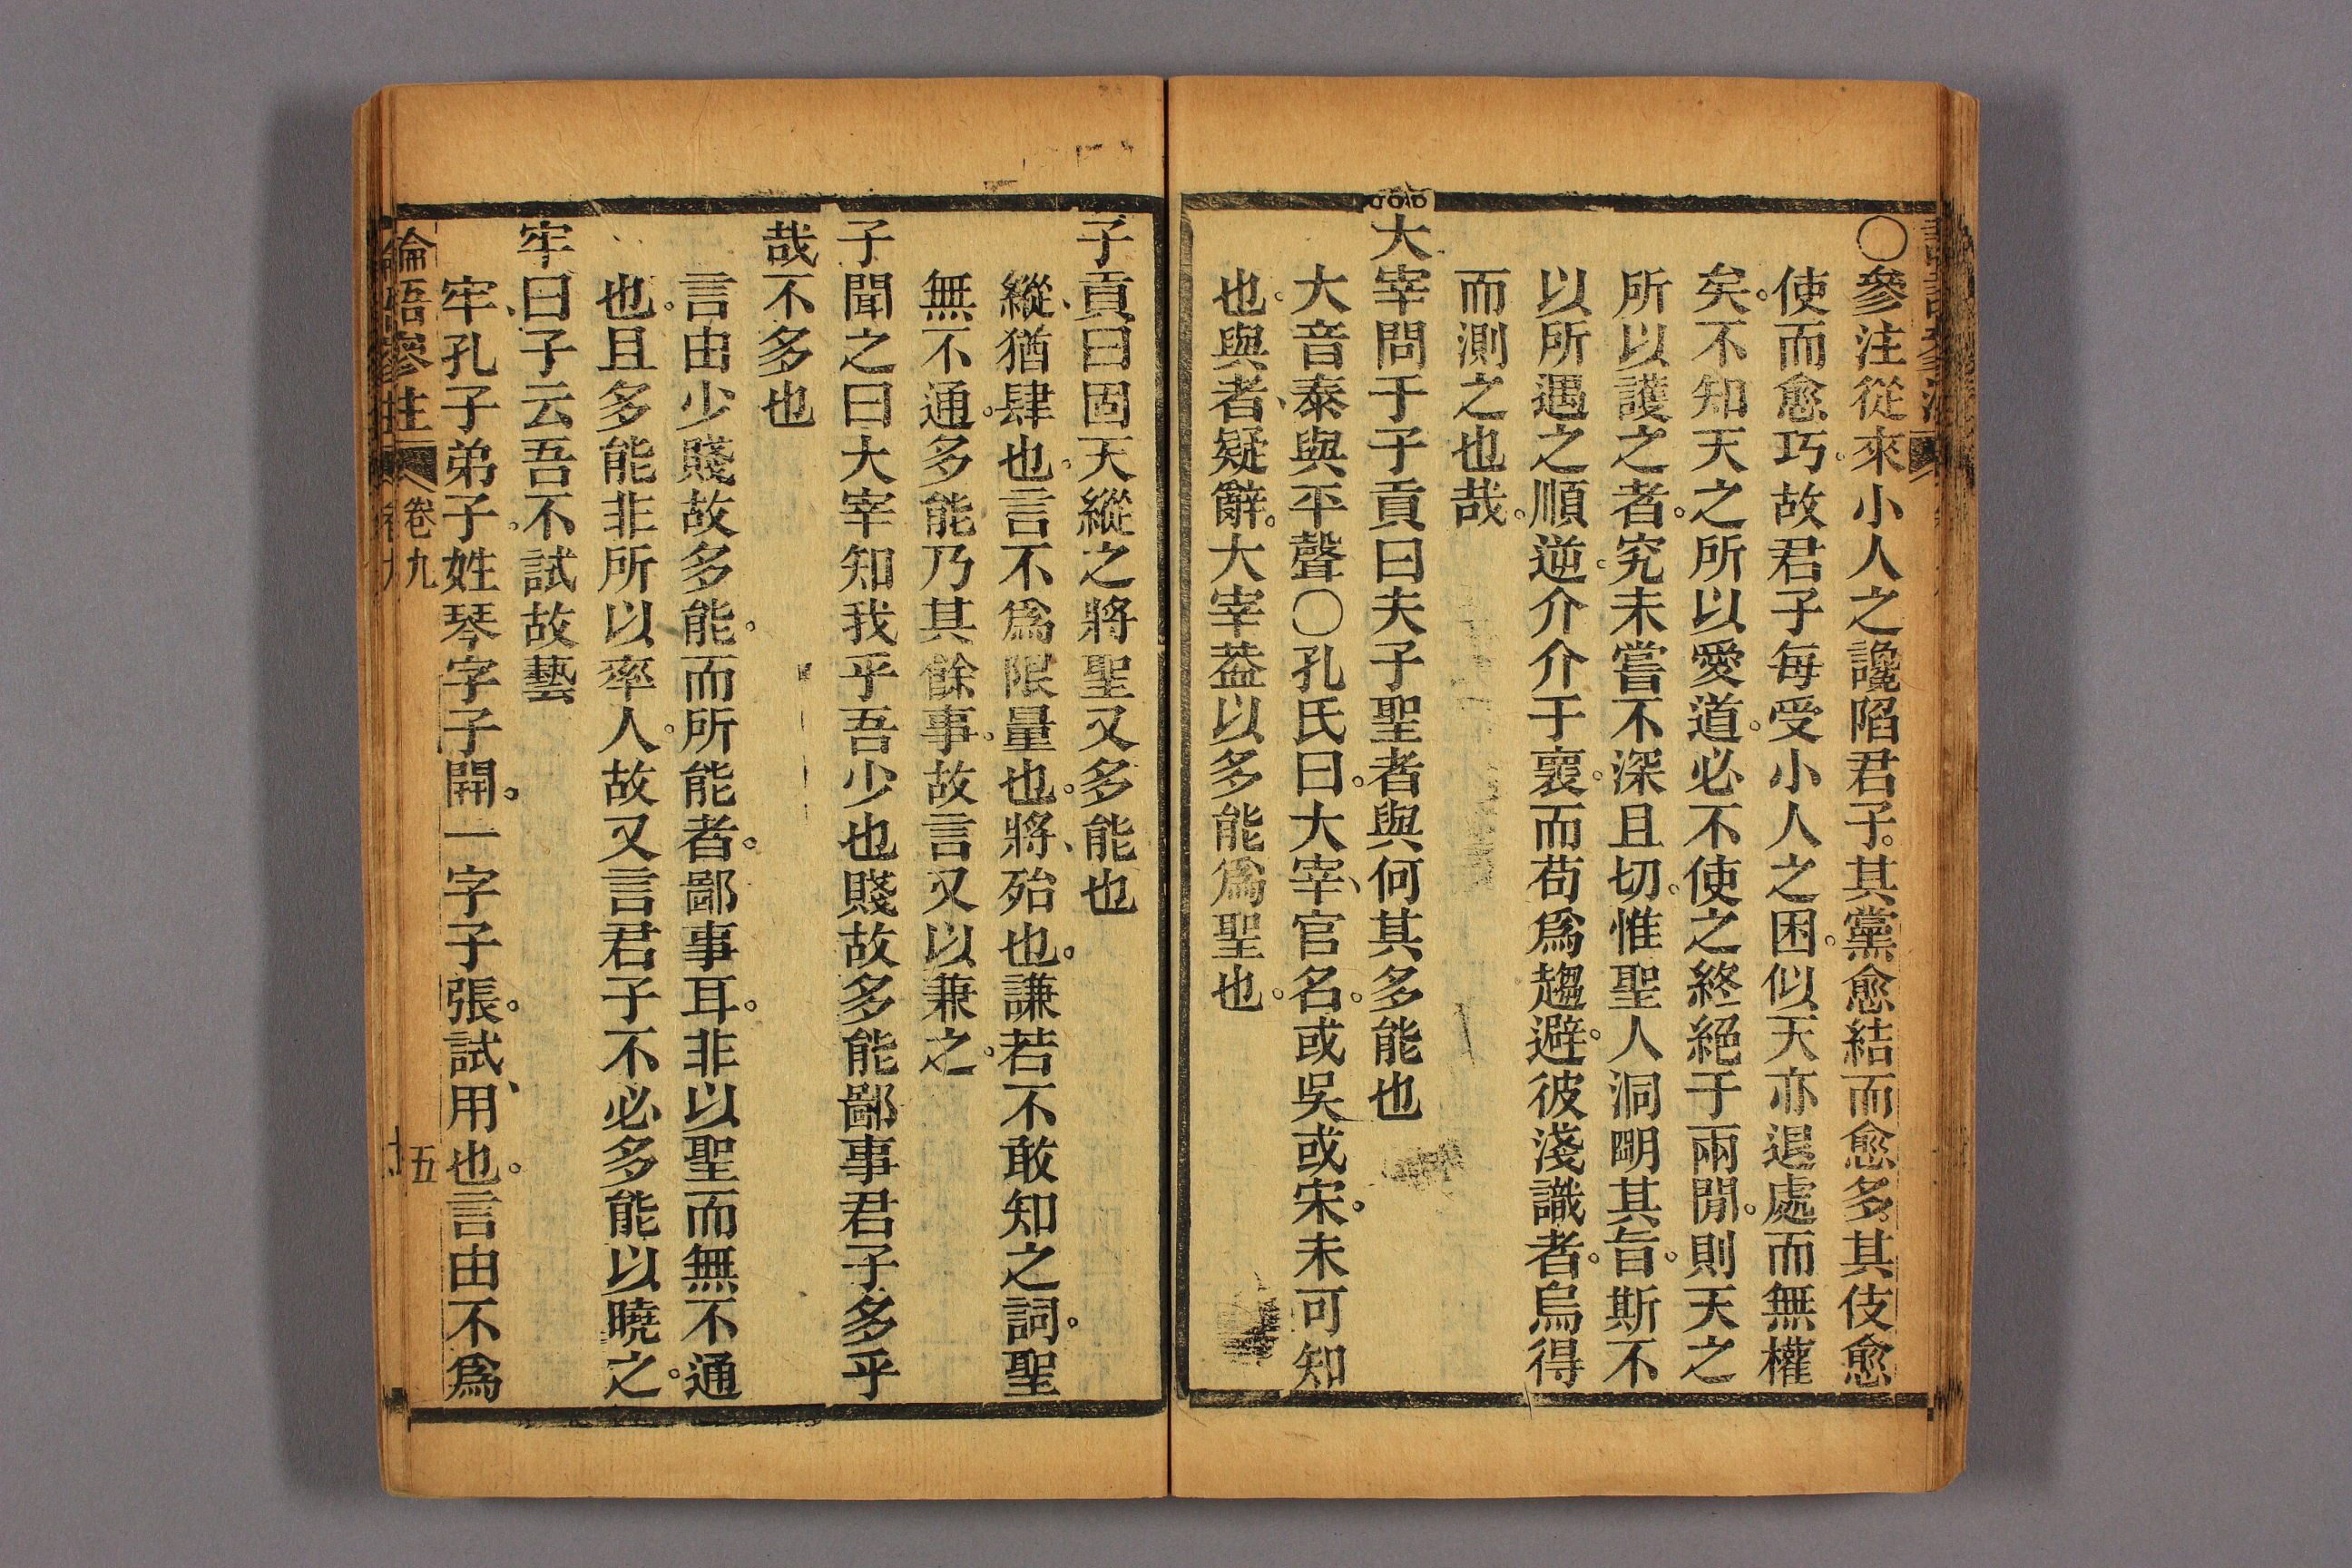 〇參注從來小人之讒陷君子。其黨愈結而愈多。其伎愈
使而愈巧。故君子每受小人之困。似天亦退處而無權
矣。不知天之所以愛道。必不使之終絕于兩閒。則天之
所以護之者。究未嘗不深且切。惟聖人洞朙其旨。斯不
以所遇之順逆。介介于裏。而苟爲趨避。彼淺識者。烏得
而測之也哉。
大宰問于子貢曰夫子聖者與何其多能也
大音泰與平聲〇孔氏曰。大宰、官名。或吳或宋。未可知
也。與者、疑辭。大宰葢以多能爲聖也。
子貢曰固天縱之將聖又多能也
縱、猶肆也。言不爲限量也。將、殆也。謙若不敢知之詞。聖
無不通。多能乃其餘事。故言又以兼之。
子聞之曰大宰知我乎吾少也賤故多能鄙事君子多乎
哉不多也
言由少賤故多能。而所能者。鄙事耳。非以聖而無不通
也。且多能非所以率人。故又言君子不必多能以曉之。
牢曰子云吾不試故藝
牢、孔子弟子。姓琴字子開。一字子張。試、用也。言由不爲
論語參注 卷九 五